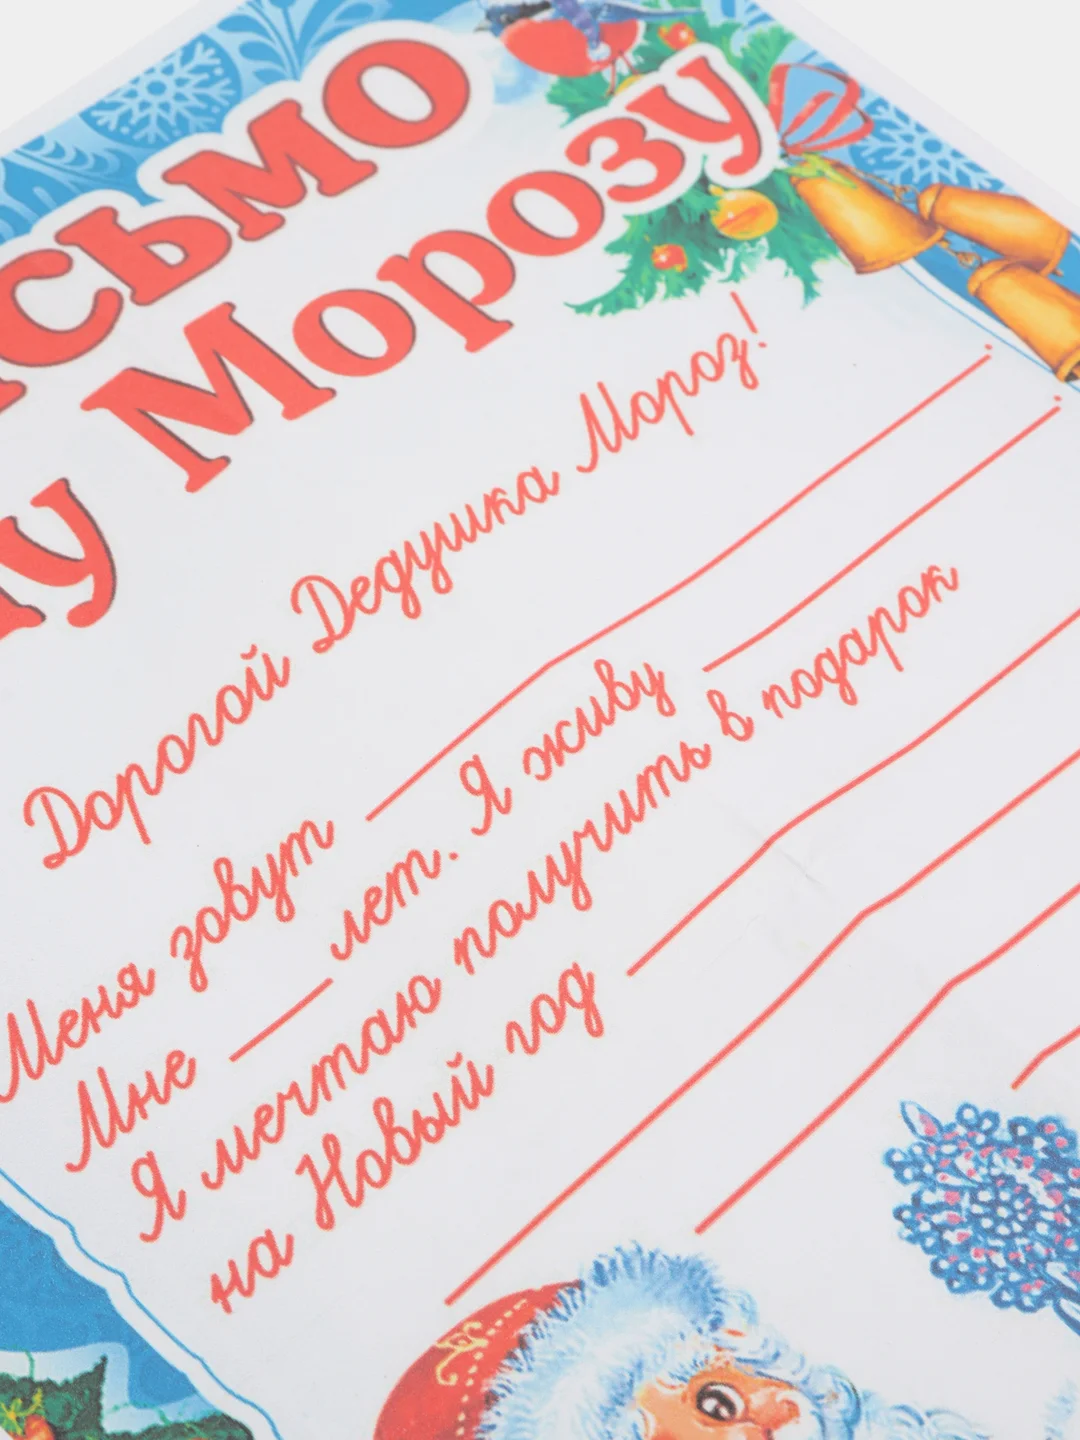 сьмо
у Морозу
Дорогой Дедушка Мороз!
Меня зовут
Мне лет. Я живу
Я мечтаю получить в подарок
на Новый год